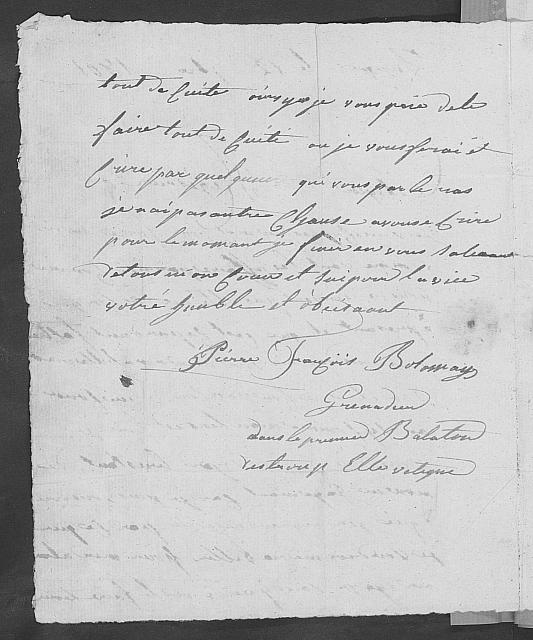 tout de Cuite ainsy je vous prie de le
faire tout de Cuite ou je vous ferai et
Crire par quelqun qui vous parle ras
je nai pas autre Chause a vous e Crire
pour le moment je finir en vous Saluant
de tous mon Cœur et Sui pour la vice
votre humble et obeisant
Pierre François Bolomay
Grenadier
dans le premier Balaton
Elle vetique